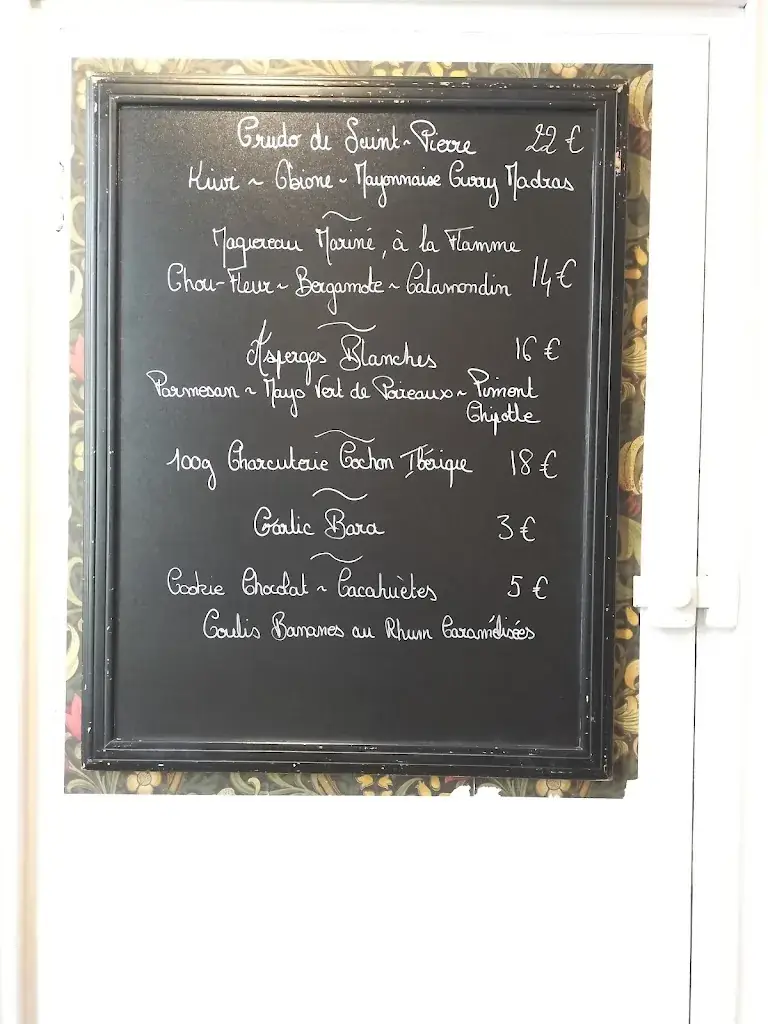 Crudo de Saint~Pierre 22 €
Kiwi ~ Obione ~ Mayonnaise Curry Madras
Maquereau Mariné, à la Flamme
Chou-Fleur ~ Bergamote ~ Calamondin 14 €
Asperges Blanches 16 €
Parmesan ~ Mayo Vert de Poireaux ~ Piment
Chipotle
100g Charcuterie Cochon Ibérique 18 €
Garlic Bara 3 €
Cookie Chocolat ~ Cacahuètes 5 €
Coulis Bananes au Rhum Caramélisées